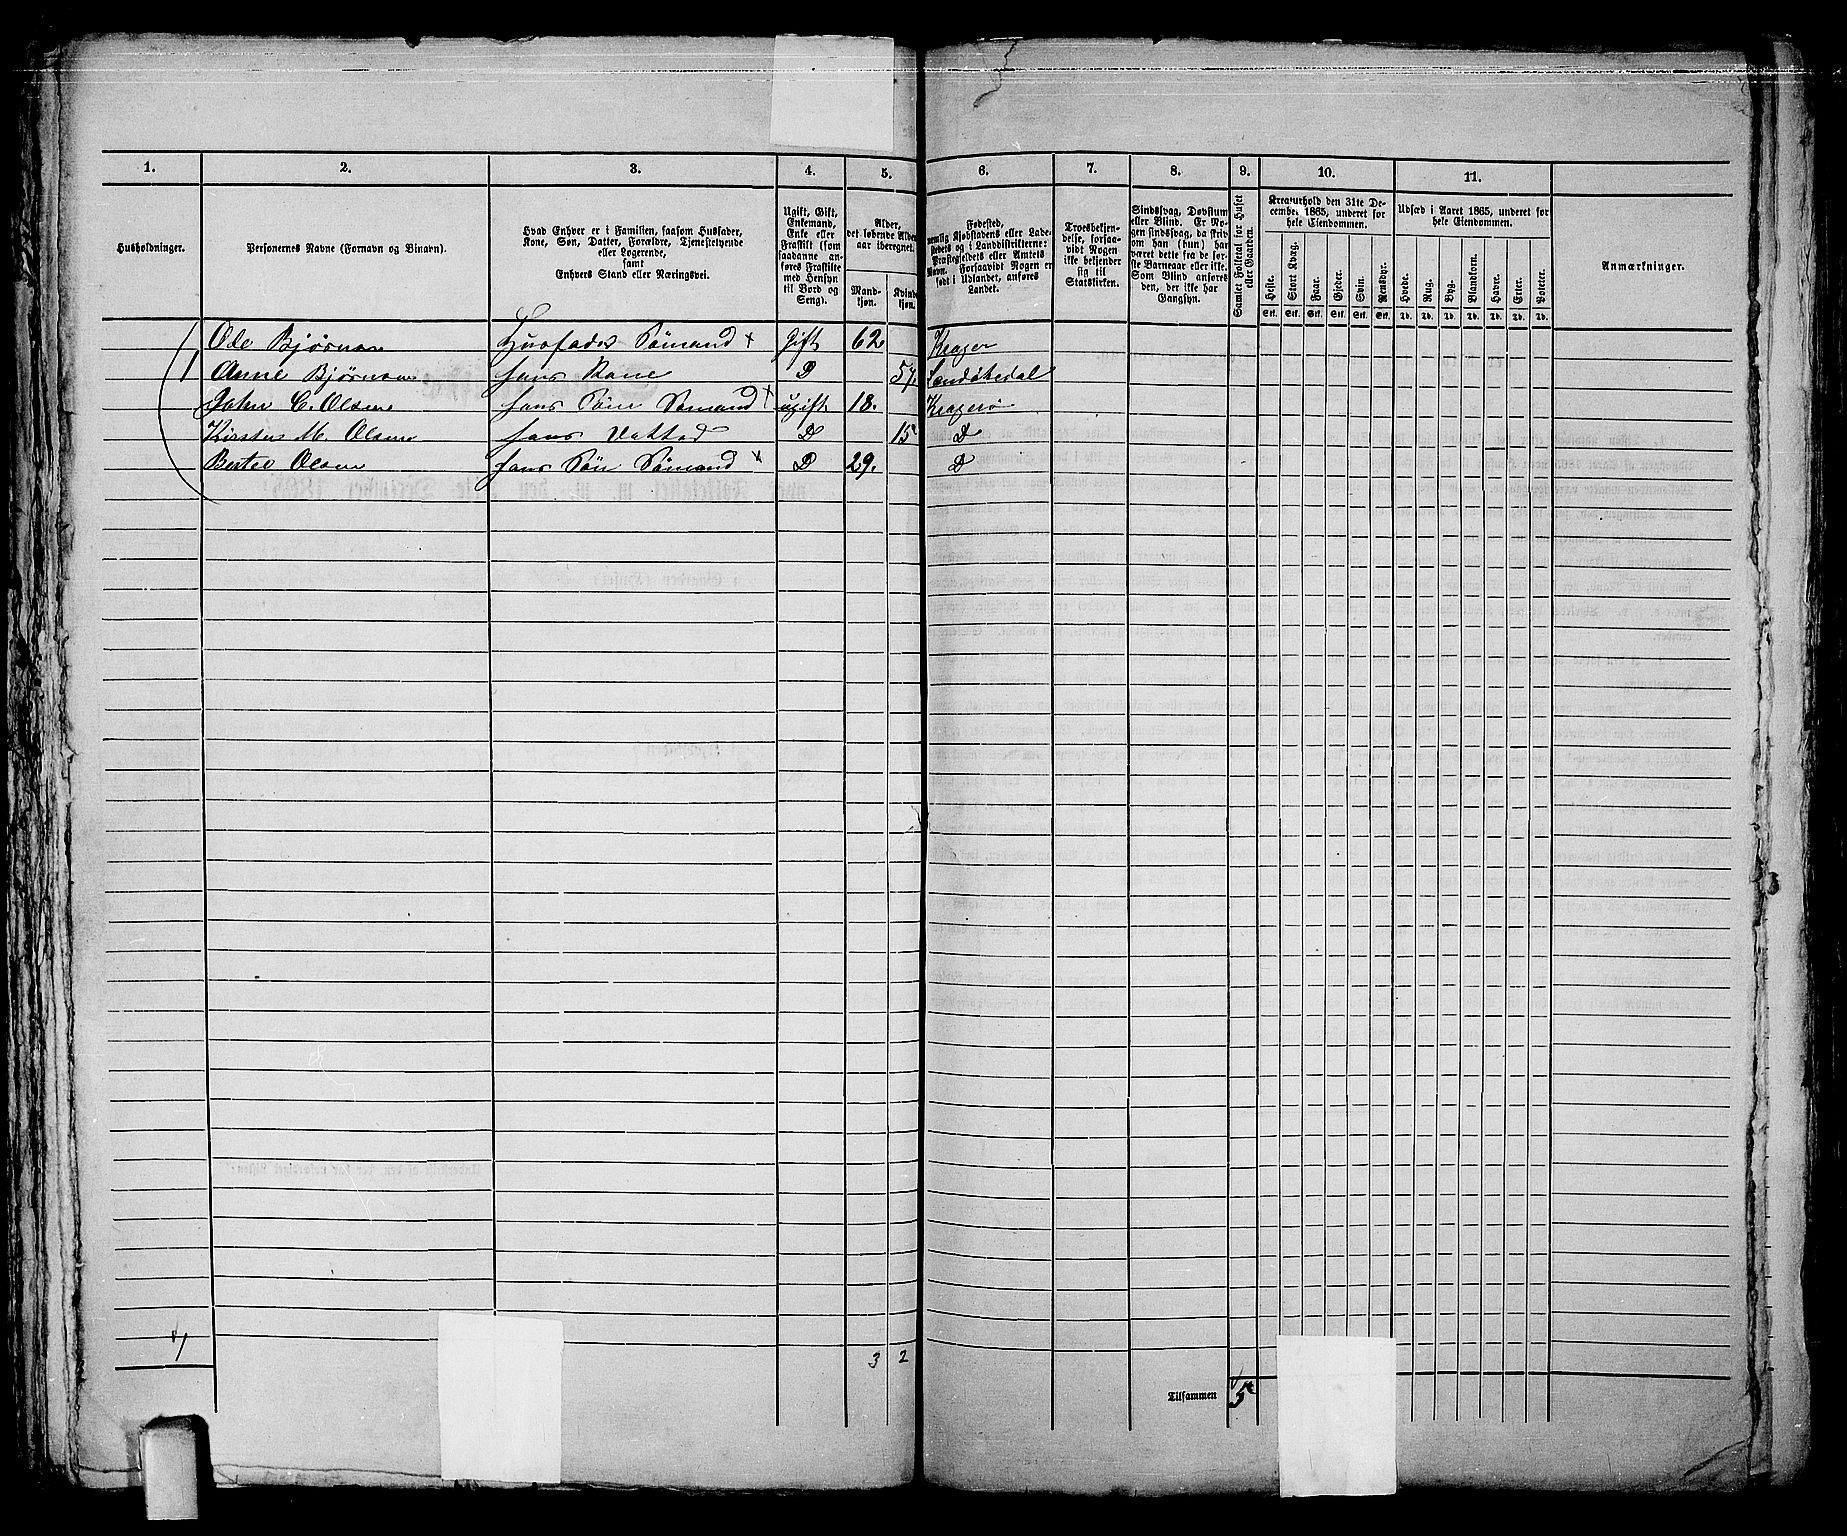 1. 2. 3. 4. 5. 6. 7. 8. 9. 10. 11.
Husholdninger.
Personernes Navne (Fornavn og Binavn).
Hvad Enhver er i Familien, saasom Husfader,
Kone, Søn, Datter, Forældre, Tjenestetyende
eller Logerende,
samt
Enhvers Stand eller Næringsvei.
Ugift, Gift,
Enkemand,
Enke eller
Fraskilt (som
saadanne an-
føres Fraskilte
med Hensyn
til Bord og
Seng).
Alder,
det løbende Alders-
aar iberegnet.
Mand-
kjøn.
Kvinde-
kjøn.
Fødested,
nemlig Kjøbstadens eller Lade-
stedets og i Landdistrikterne:
Præstegjeldets eller Amtets
Navn. Forsaavidt Nogen er
født i Udlandet, anføres
Landet.
Troesbekjen-
delse, forsaa-
vidt Nogen
ikke bekjender
sig til
Statskirken.
Sindssvag, Døvstum
eller Blind. Er No-
gen sindssvag, da skriv
om han (hun) har
været dette fra de før-
ste Barneaar eller ikke.
Som Blind anføres
den, der ikke har
Gangsyn.
Samlet Folketal for Huset
eller Gaarden.
Kreaturhold den 31te De-
cember 1865, underet for
hele Eiendommen.
Heste. Stort Kvæg. Faar. Gjeder. Svin. Rensdyr.
Stk. Stk. Stk. Stk. Stk. Stk.
Udsæd i Aaret 1865, underet for
hele Eiendommen.
Hvede. Rug. Byg. Blandkorn. Havre. Erter. Poteter.
Td. Td. Td. Td. Td. Td. Td.
Anmærkninger.
Ode Bjørnsen Husfader Sømand × Gift 62 Krager
1 Anne Bjørnsen hans Kone D 57. Sandøkedal
John C. Olsen hans Søn Sømand × ugift 18. Kragerø
Kirstus M. Olsen hans Dattad D 15 D
Bertel Olsen hans Søn Sømand × D 29. D
1 3 2
Tilsammen 5